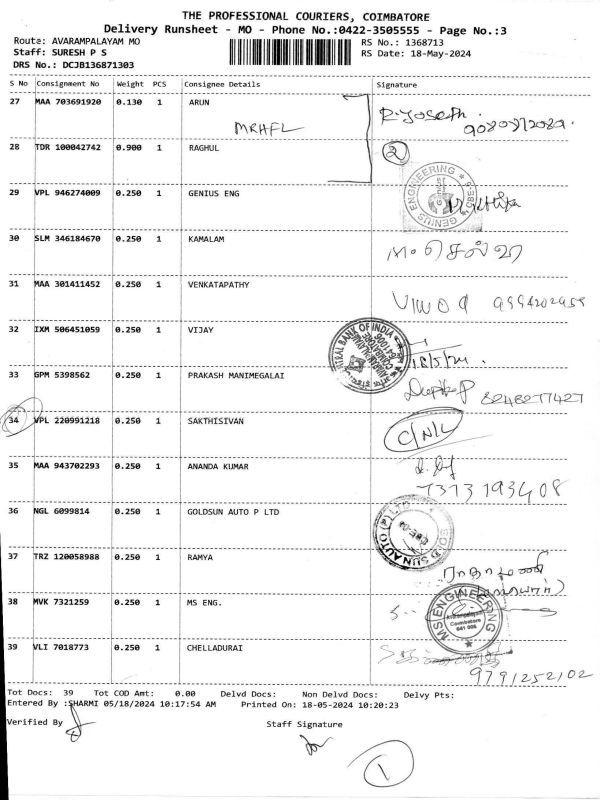 THE PROFESSIONAL COURIERS, COIMBATORE
Delivery Runsheet - MO - Phone No.:0422-3505555 - Page No.:3
Route: AVARAMPALAYAM MO
RS No.: 1368713
Staff: SURESH P S
RS Date: 18-May-2024
DRS No.: DCJB136871303
S No Consignment No Weight PCS Consignee Details Signature
27 MAA 703691920 0.130 1 ARUN
MRHFL
R. Joseph.
28 TDR 100042742 0.900 1 RAGHUL
2
29 VPL 946274009 0.250 1 GENIUS ENG
GENIUS ENGINEERING
30 SLM 346184670 0.250 1 KAMALAM
31 MAA 301411452 0.250 1 VENKATAPATHY
32 IXM 506451059 0.250 1 VIJAY
CENTRAL BANK OF INDIA
18/5/24.
33 GPM 5398562 0.250 1 PRAKASH MANIMEGALAI
8248277427
34 VPL 220991218 0.250 1 SAKTHISIVAN
C/N/L
35 MAA 943702293 0.250 1 ANANDA KUMAR
7373193408
36 NGL 6099814 0.250 1 GOLDSUN AUTO P LTD
GOLD SUN AUTO (P) LTD
37 TRZ 120058988 0.250 1 RAMYA
38 MVK 7321259 0.250 1 MS ENG.
M S ENGINEERING
Avarampalayam
Coimbatore
641 006
39 VLI 7018773 0.250 1 CHELLADURAI
9791252102
Tot Docs: 39 Tot COD Amt: 0.00 Delvd Docs: Non Delvd Docs: Delvy Pts:
Entered By :SHARMI 05/18/2024 10:17:54 AM Printed On: 18-05-2024 10:20:23
Verified By
Staff Signature
1